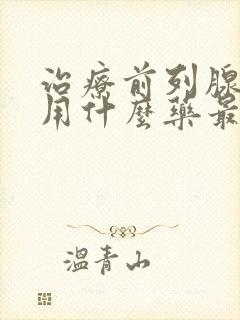 治療前列腺
用什麼藥最
溫青山